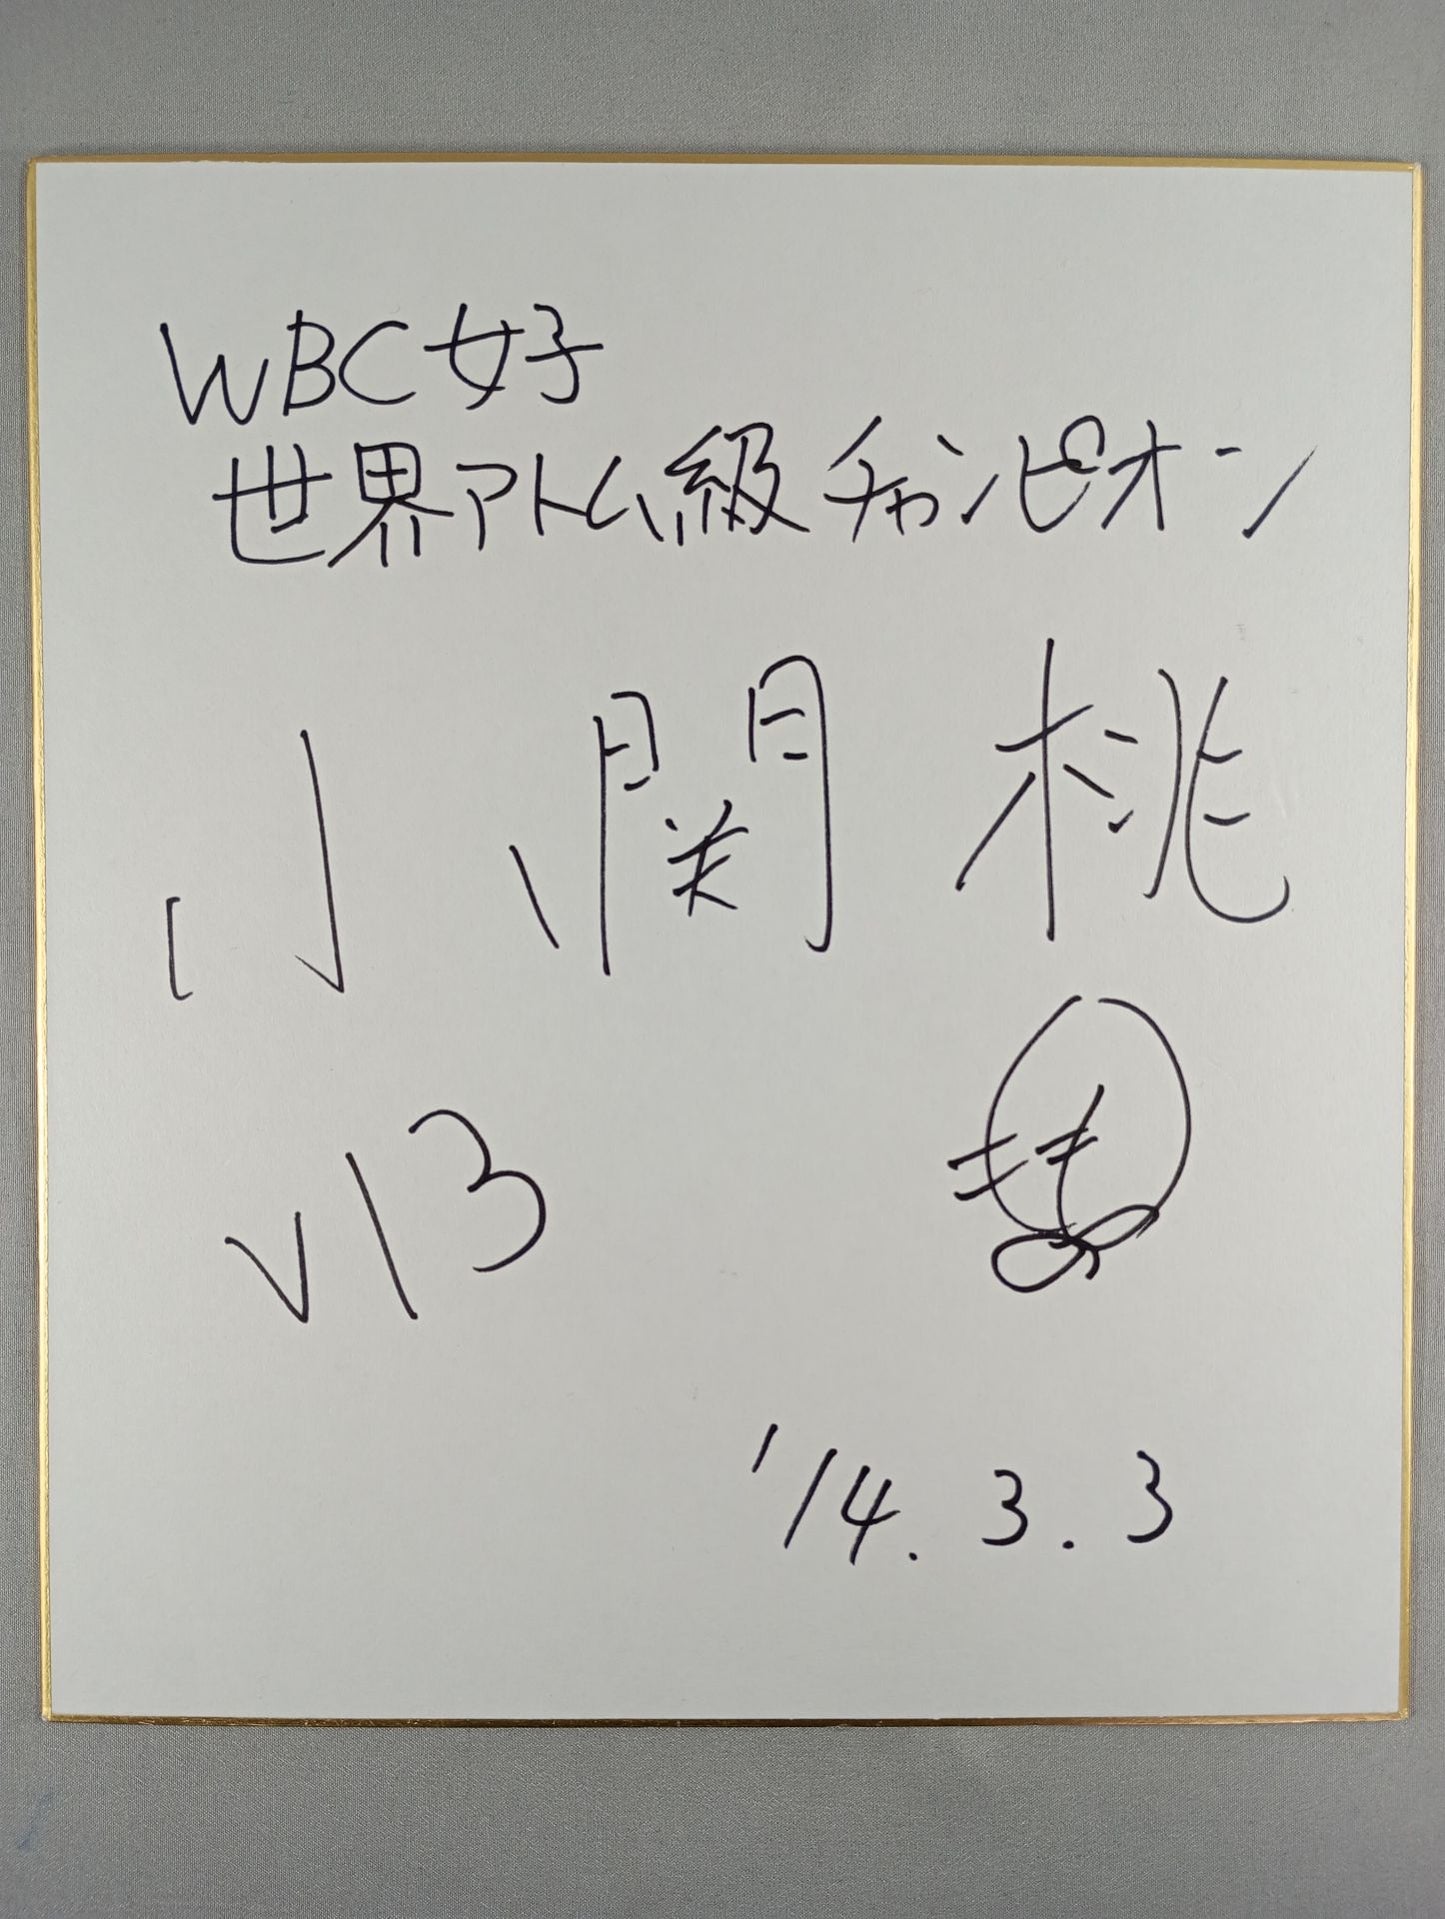 WBC女子
世界アトム級チャンピオン
小関 桃
V13
もも
'14. 3. 3